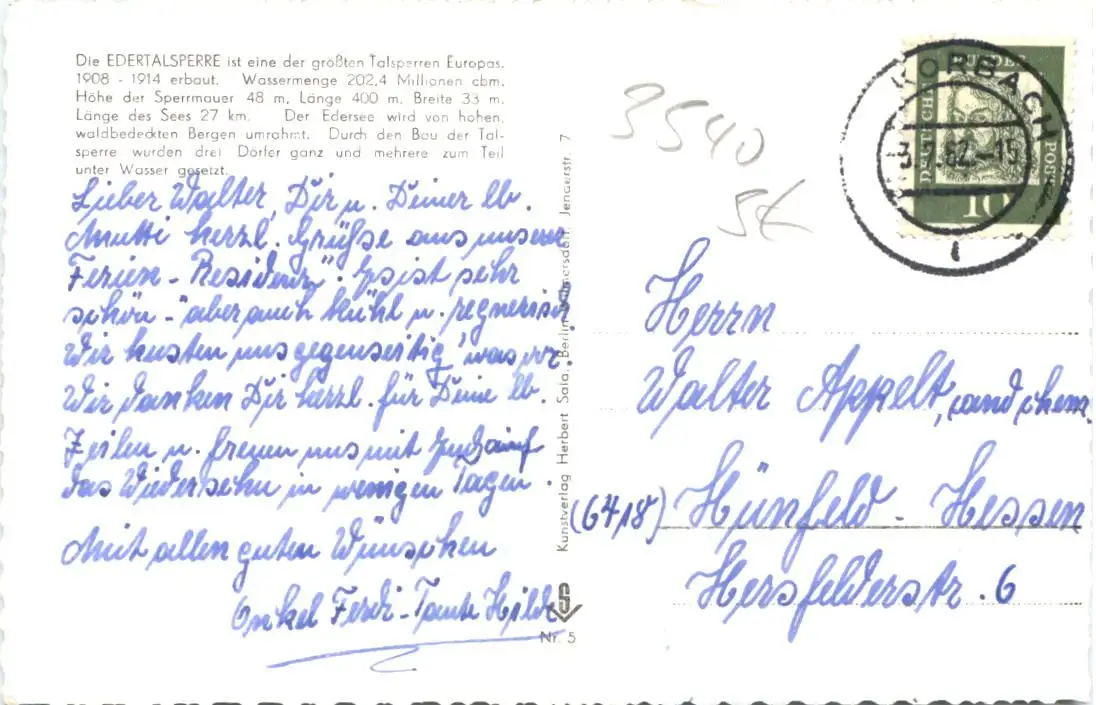 Die EDERTALSPERRE ist eine der größten Talsperren Europas.
1908 - 1914 erbaut. Wassermenge 202,4 Millionen cbm.
Höhe der Sperrmauer 48 m, Länge 400 m. Breite 33 m.
Länge des Sees 27 km. Der Edersee wird von hohen,
waldbedeckten Bergen umrahmt. Durch den Bau der Tal-
sperre wurden drei Dörfer ganz und mehrere zum Teil
unter Wasser gesetzt.
Lieber Walter, Dir u. Deiner lb.
Mutti herzl. Grüße aus unserer
Ferien-Residenz". Es ist sehr
schön - aber auch kühl u. regnerisch.
Wir husten uns gegenseitig was vor.
Wir danken Dir herzl. für Deine lb.
Zeilen u. freuen uns mit Euch auf
das Wiedersehn in wenigen Tagen.
Mit allen guten Wünschen
Onkel Ferdi - Tante Hilde
Kunstverlag Herbert Sala, Berlin-Wilmersdorf, Jenaerstr. 7
Nr. 5
3540
5€
KORBACH
62.-15
DEUTSCHE BUNDESPOST
10
Herrn
Walter Appelt,
(6418) Hünfeld - Hessen
Hersfelderstr. 6